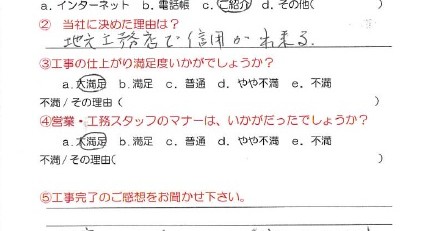 a. インターネット b. 電話帳 c. ご紹介 d. その他(
② 当社に決めた理由は?
地元工務店で信用が出来る.
③工事の仕上がり満足度いかがでしょうか?
a.大満足 b.満足 c. 普通 d. やや不満 e. 不満
不満/その理由( )
④営業・工務スタッフのマナーは、いかがだったでしょうか?
a.大満足 b.満足 c. 普通 d. やや不満 e. 不満
不満/その理由( )
⑤工事完了のご感想をお聞かせ下さい。